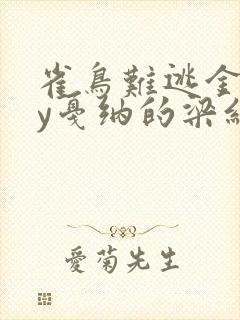 雀鳥難逃金
y戛纳的梁
愛菊先生